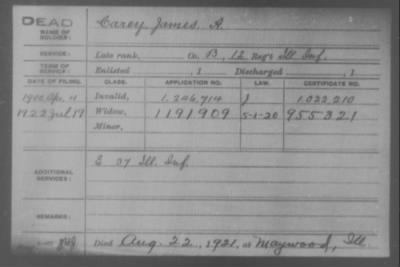 DEAD
NAME OF SOLDIER: Carey James. A.
SERVICE: Late rank, Co. B, 12 Reg't Ill. Inf.
TERM OF SERVICE: Enlisted , 1 Discharged , 1
DATE OF FILING. CLASS. APPLICATION NO. LAW. CERTIFICATE NO.
1900 Apr. 4 Invalid, 1.246.714 1.022.210
1922 Jul 17 Widow, 1191909 5-1-20 955321
Minor,
ADDITIONAL SERVICES: E 07 Ill. Inf.
REMARKS:
Died Aug. 22, 1921, at Maywood, Ill.